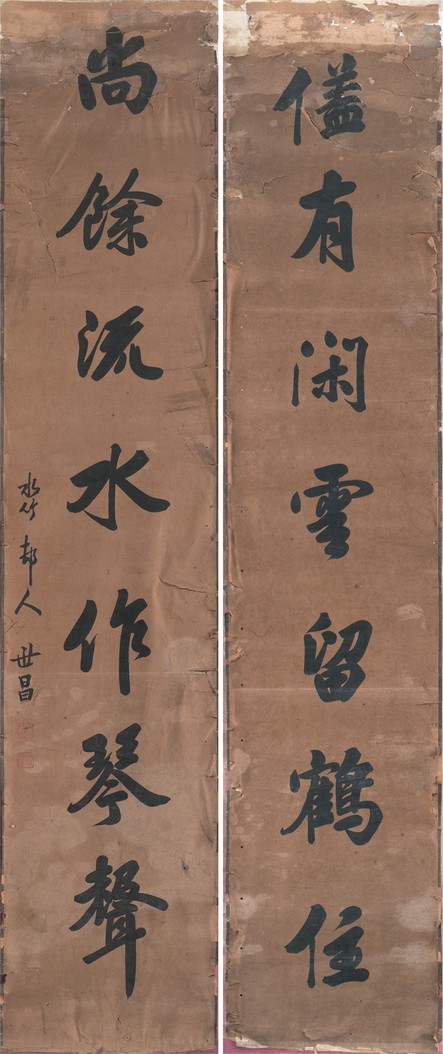 儘有閑雲留鶴住
尚餘流水作琴聲
水竹邨人世昌